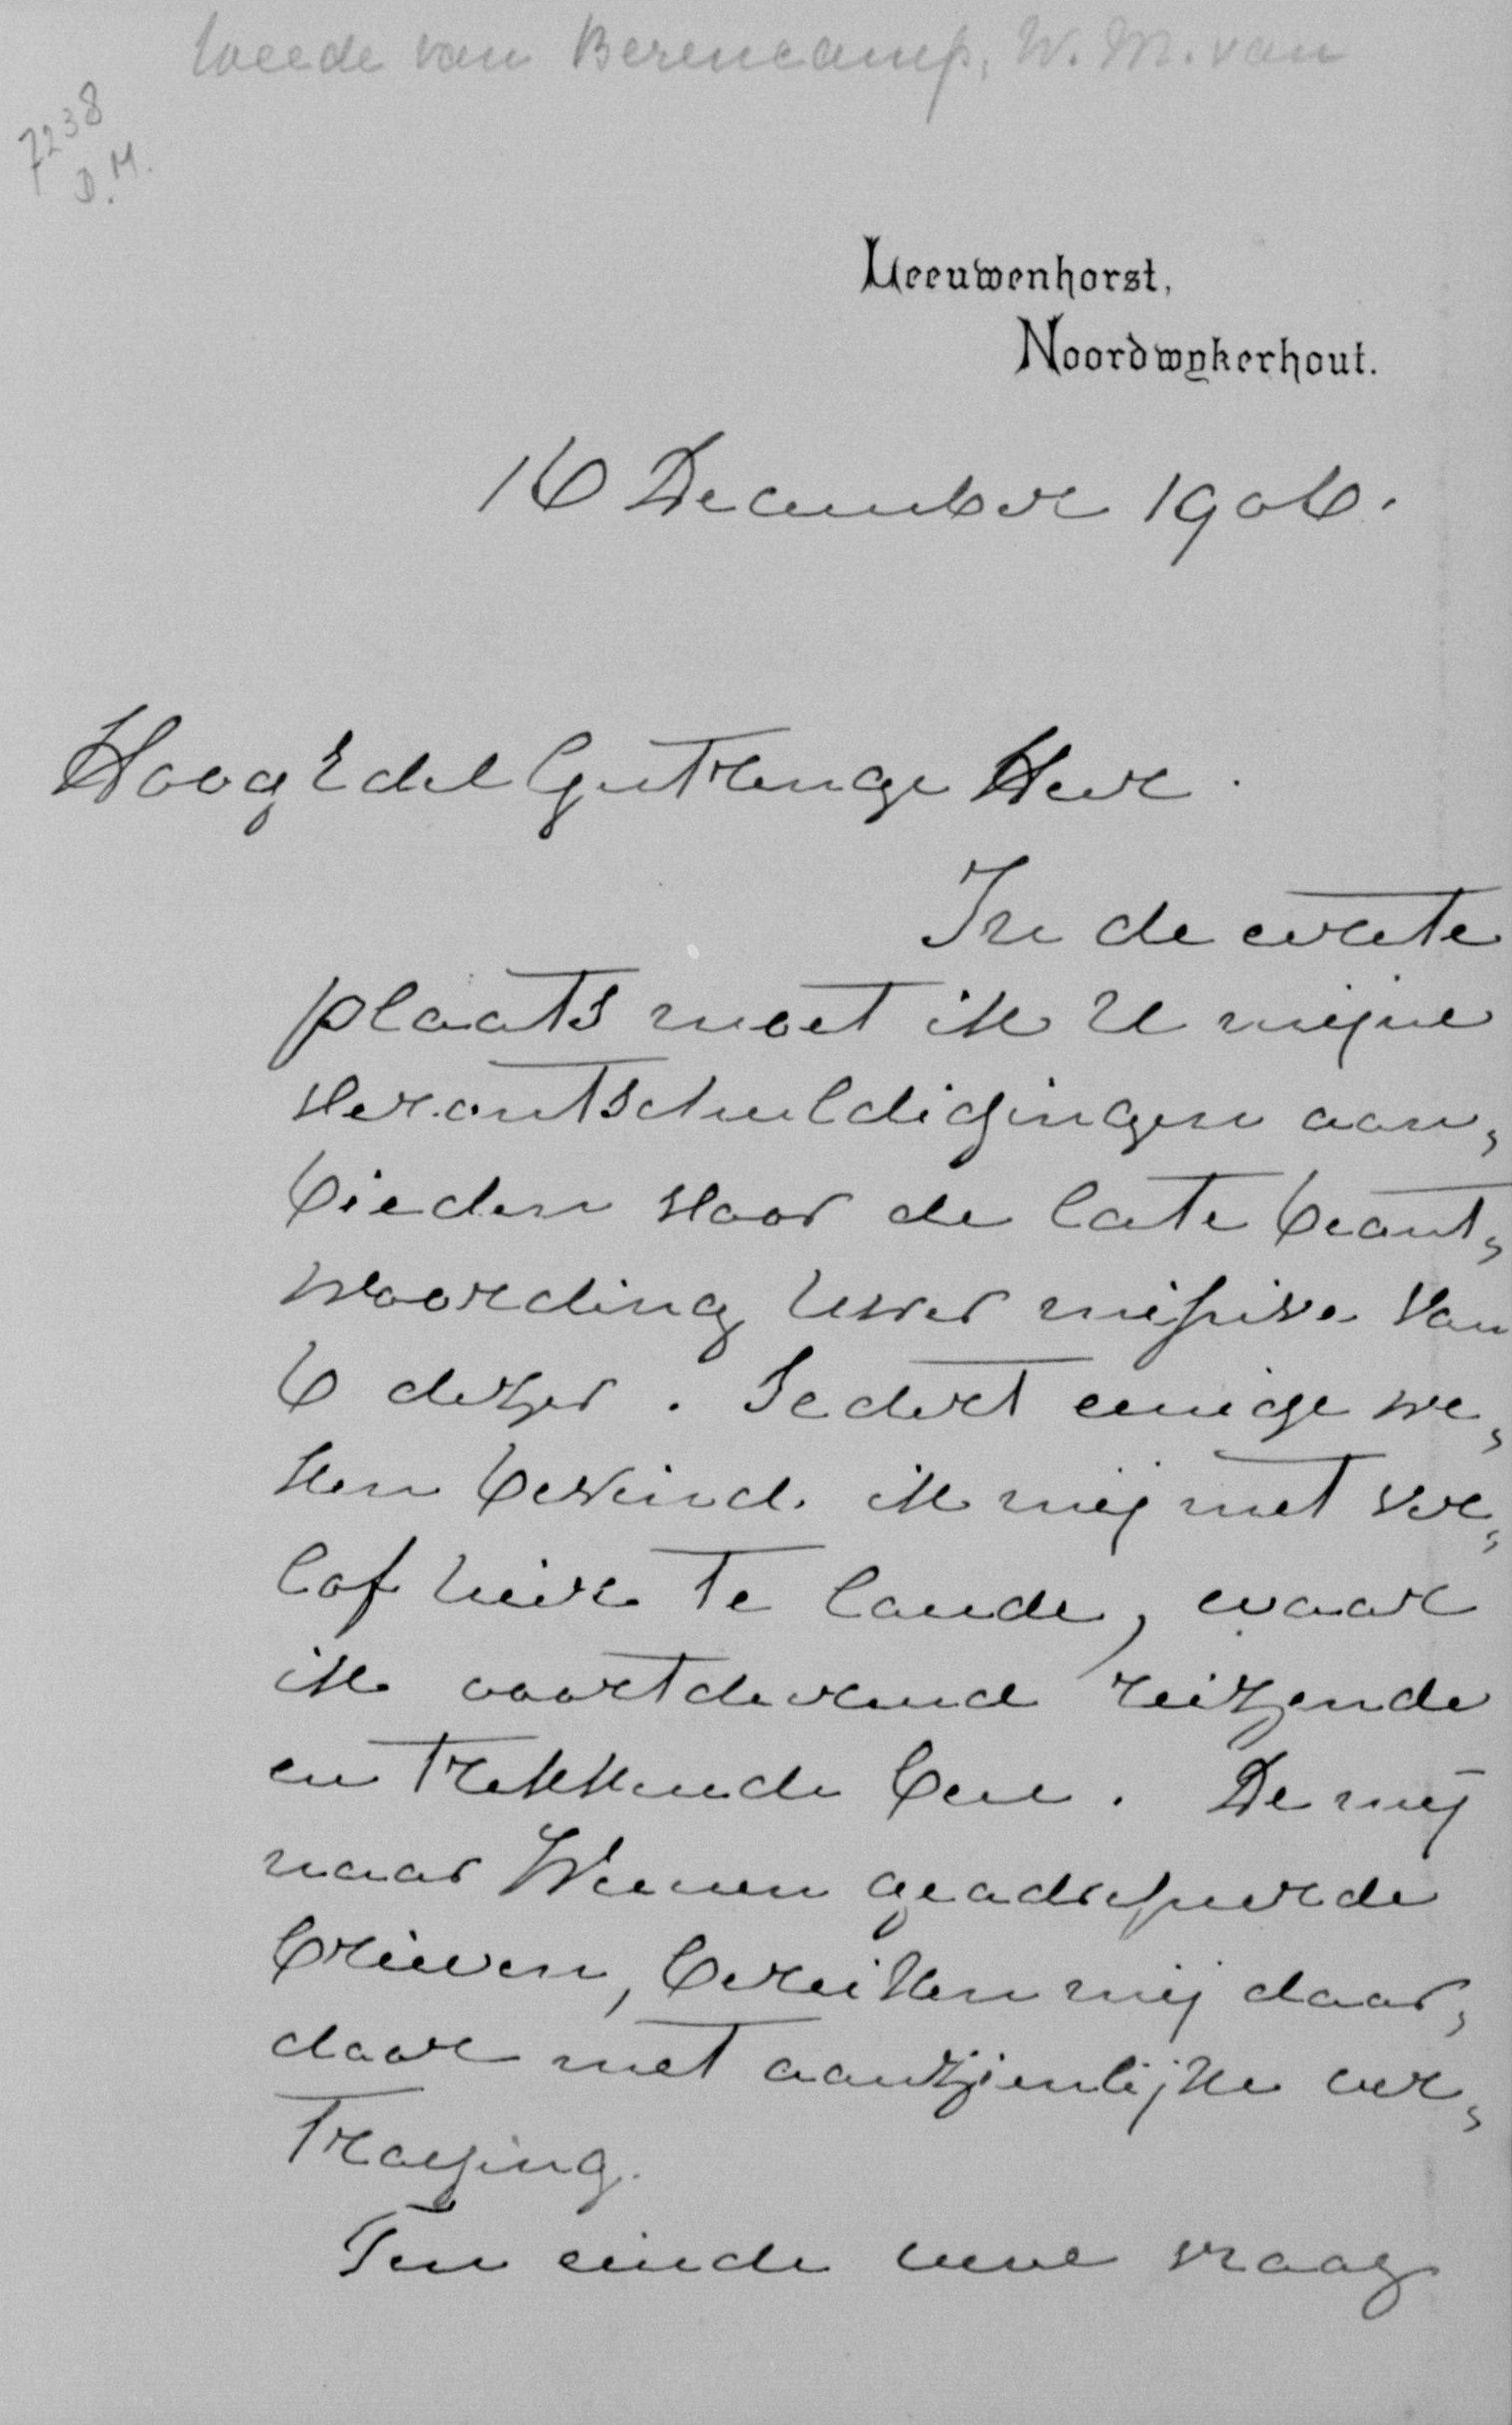 Weede van Berencamp, W. M. van
7238
D. H.
Leeuwenhorst,
Noordwykerhout.
16 December 1906.
HoogEdelGestrenge Heer.
In de eerste
plaats moet ik U mijne
verontschuldigingen aan,
bieden voor de late beant,
woording Uwer missive van
6 dezer. Sedert eenige we,
ken bevind ik mij met ver,
lof hier te lande, waar
ik voortdurend reizende
en trekkende ben. De mij
naar Weenen geadresseerde
brieven, bereiken mij daar,
door met aanzienlijke ver,
traging.
Ten einde uwe vraag